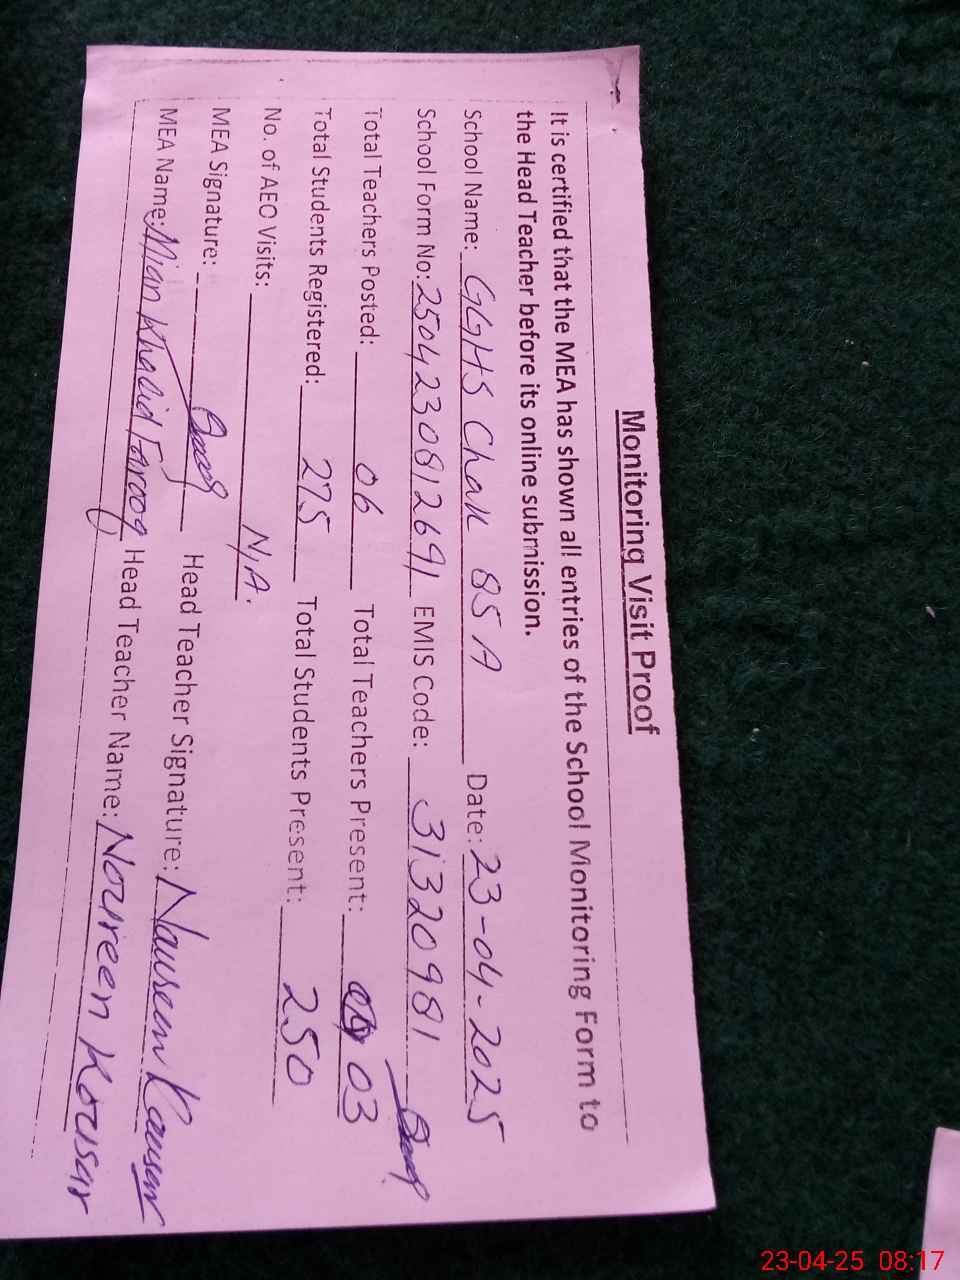 Monitoring Visit Proof
It is certified that the MEA has shown all entries of the School Monitoring Form to
the Head Teacher before its online submission.
School Name: GGHS Chak 85 A Date: 23-04-2025
School Form No: 2504230812691 EMIS Code: 31320981
Total Teachers Posted: 06 Total Teachers Present: 03
Total Students Registered: 275 Total Students Present: 250
No. of AEO Visits: N/A.
MEA Signature: Head Teacher Signature: Nawreen Kausar
MEA Name: Mian Khalid Farooq Head Teacher Name: Noureen Kousar
23-04-25 08:17